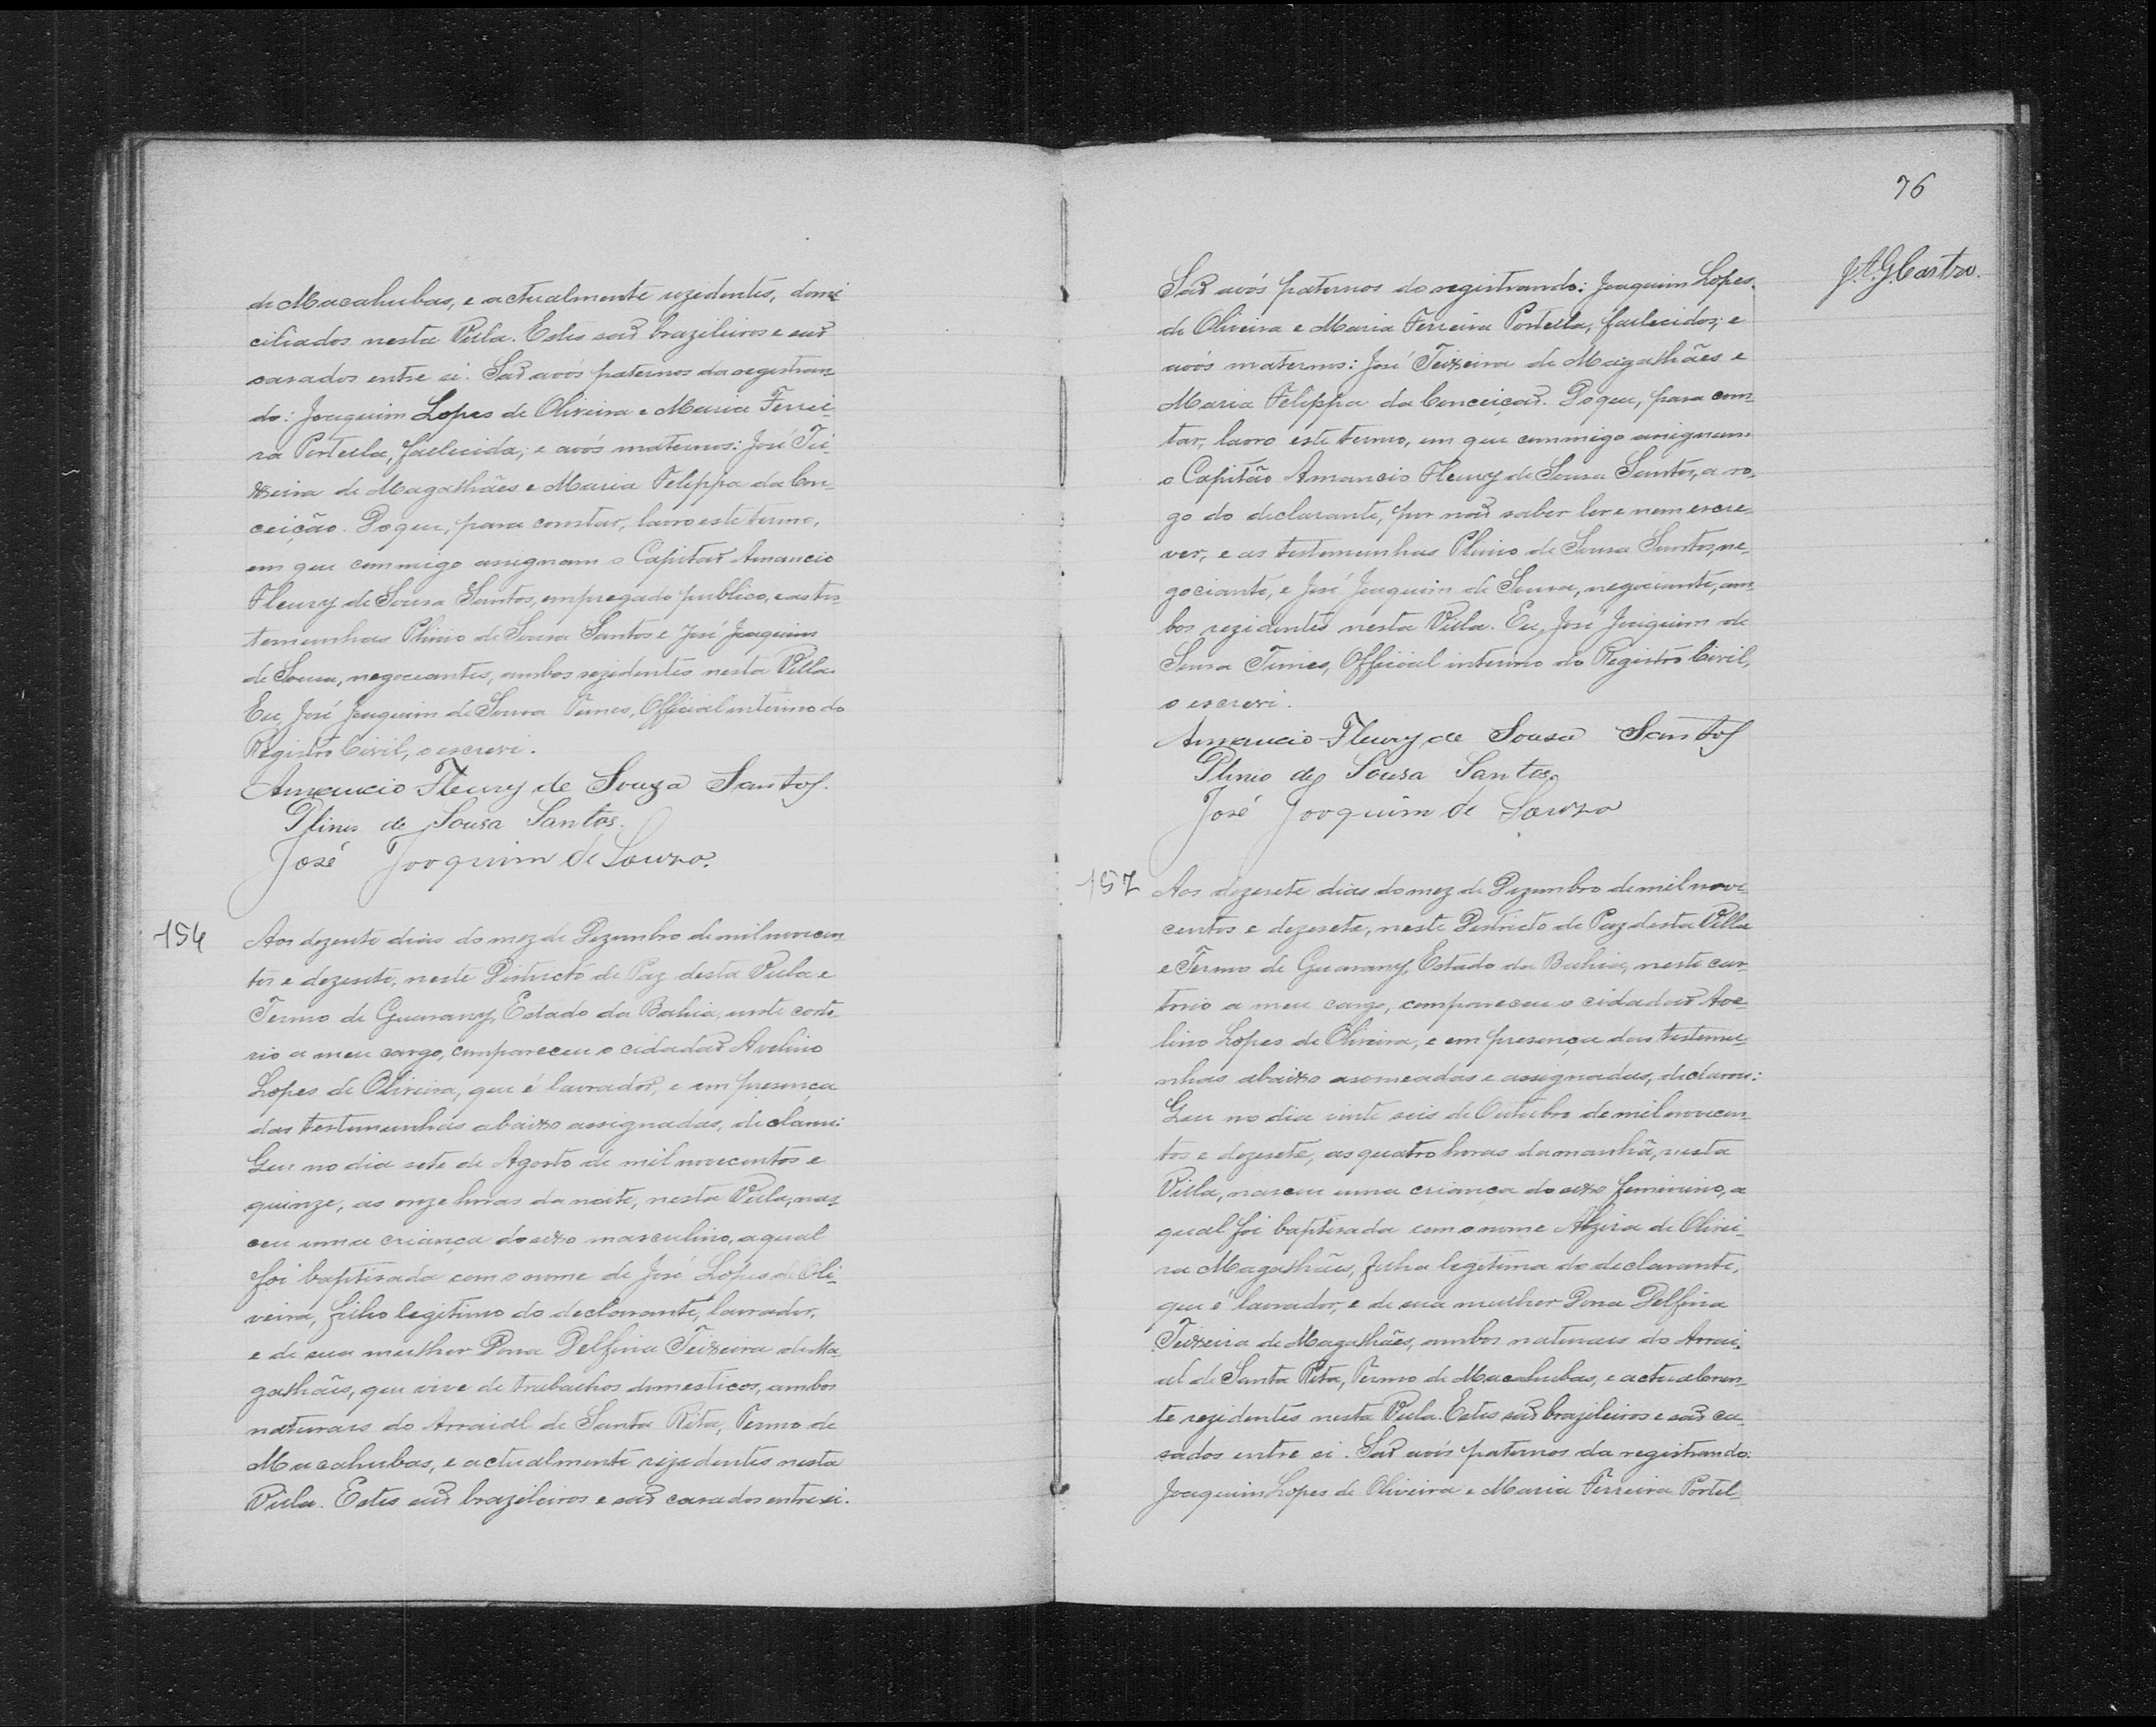 de Macahubas, e actualmente rezedentes, domi
ciliados nesta Villa. Estes saõ brazileiros e saõ
casados entre si. Saõ avós paternos da registran-
do: Joaquim Lopes de Oliveira e Maria Ferrei-
ra Portella, fallecida; e avós maternos: José Tei-
xeira de Magalhães e Maria Felippa da Con-
ceição. Do que, para constar, lavro este termo,
em que commigo assignam o Capitaõ Amancio
Fleury de Sousa Santos, empregado publico, e as tes-
temunhas Plinio de Sousa Santos e José Joaquim
de Sousa, negociantes, ambos rezidentes nesta Villa.
Eu, José Joaquim de Sousa Tunes, Official interino do
Registro Civil, o escrevi.
Amancio Fleury de Souza Santos.
Plinio de Sousa Santos.
José Joaquim de Souza.
156
Aos dezesete dias do mez de Dezembro de mil novecen
tos e dezesete, neste Districto de Paz desta Villa e
Termo de Guarany, Estado da Bahia, neste carto-
rio a meu cargo, compareceu o cidadaõ Avelino
Lopes de Oliveira, que é lavrador, e em presença
das testemunhas abaixo assignadas, declarou:
Que no dia sete de Agosto de mil novecentos e
quinze, as onze horas da noite, nesta Villa, nas-
ceu uma criança do sexo masculino, a qual
foi baptisada com o nome de José Lopes de Oli-
veira, filho legitimo do declarante, lavrador,
e de sua mulher Dona Delfina Teixeira de Ma-
galhães, que vive de trabalhos domesticos, ambos
naturaes do Arraial de Santa Rita, Termo de
Macahubas, e actualmente rezedentes nesta
Villa. Estes saõ brazileiros e saõ casados entre si.
76
J.A.G. Castro.
Saõ avós paternos do registrando: Joaquim Lopes
de Oliveira e Maria Ferreira Portella, fallecidos; e
avós maternos: José Teixeira de Magalhães e
Maria Felippa da Conceiçaõ. Do que, para cons-
tar, lavro este termo, em que commigo assignam
o Capitão Amancio Fleury de Sousa Santos, a ro-
go do declarante, por naõ saber ler e nem escre-
ver, e as testemunhas Plinio de Sousa Santos, ne-
gociante, e José Joaquim de Sousa, negociante, am-
bos rezidentes nesta Villa. Eu, José Joaquim de
Sousa Tunes, Official interino do Registro Civil,
o escrevi.
Amancio Fleury de Sousa Santos
Plinio de Sousa Santos
José Joaquim de Souza
157
Aos dezesete dias do mez de Dezembro de mil nove-
centos e dezesete, neste Destricto de Paz desta Villa
e Termo de Guarany, Estado da Bahia, neste car-
torio a meu cargo, compareceu o cidadaõ Ave-
lino Lopes de Oliveira, e em presença das testemu-
nhas abaixo asomeadas e assignadas, declarou:
Que no dia vinte seis de Outubro de mil novecen-
tos e dezesete, as quatro horas da manhã, nesta
Villa, nasceu uma criança do sexo feminino, a
qual foi baptisada com o nome Alzira de Olivei-
ra Magalhães, filha legitima do declarante,
que é lavrador, e de sua mulher Dona Delfina
Teixeira de Magalhães, ambos naturaes do Arrai-
al de Santa Rita, Termo de Macahubas, e actualmen-
te rezidentes nesta Villa. Estes saõ brazileiros e saõ ca-
sados entre si. Saõ avós paternos da registrando:
Joaquim Lopes de Oliveira e Maria Ferreira Portel-